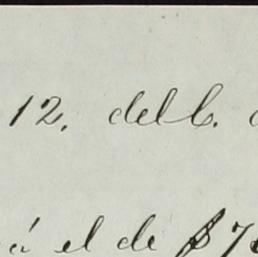 12. del C.
á el de $7